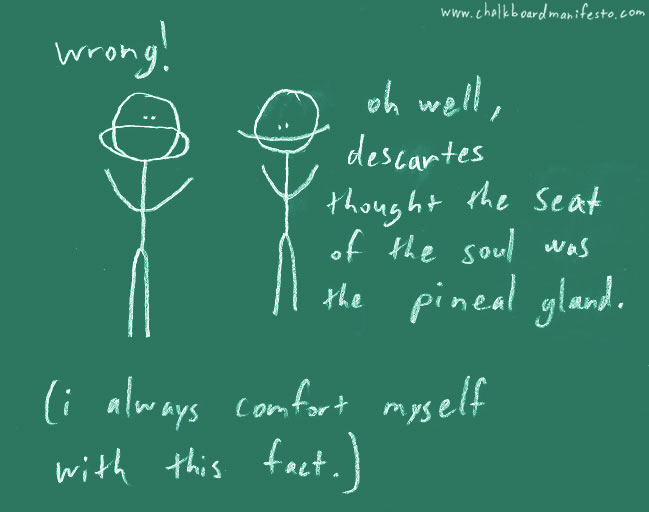 www.chalkboardmanifesto.com
wrong!
oh well,
descartes
thought the seat
of the soul was
the pineal gland.
(i always comfort myself
with this fact.)